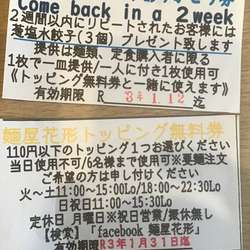 Come back in a 2 week
2週間以内にリピートされたお客様には
葱塩水餃子(3個)プレゼント致します
提供は麺類、定食購入者に限る
1枚で一皿提供/一人に付き1枚使用可
《トッピング無料券と一緒に使えます》
有効期限 R 3 4 1. 12
麺屋花形トッピング無料券
110円以下のトッピング1つお選びください
当日使用不可/6名様まで使用可※要麺注文
ご希望の方は申し付けください
火~土11:00~15:00Lo/18:00~22:30Lo
日祝日11:00~15:30
定休日 月曜日※祝日営業/振休無し
【検索】「facebook 麺屋花形」
有効期限R3年1月31日迄